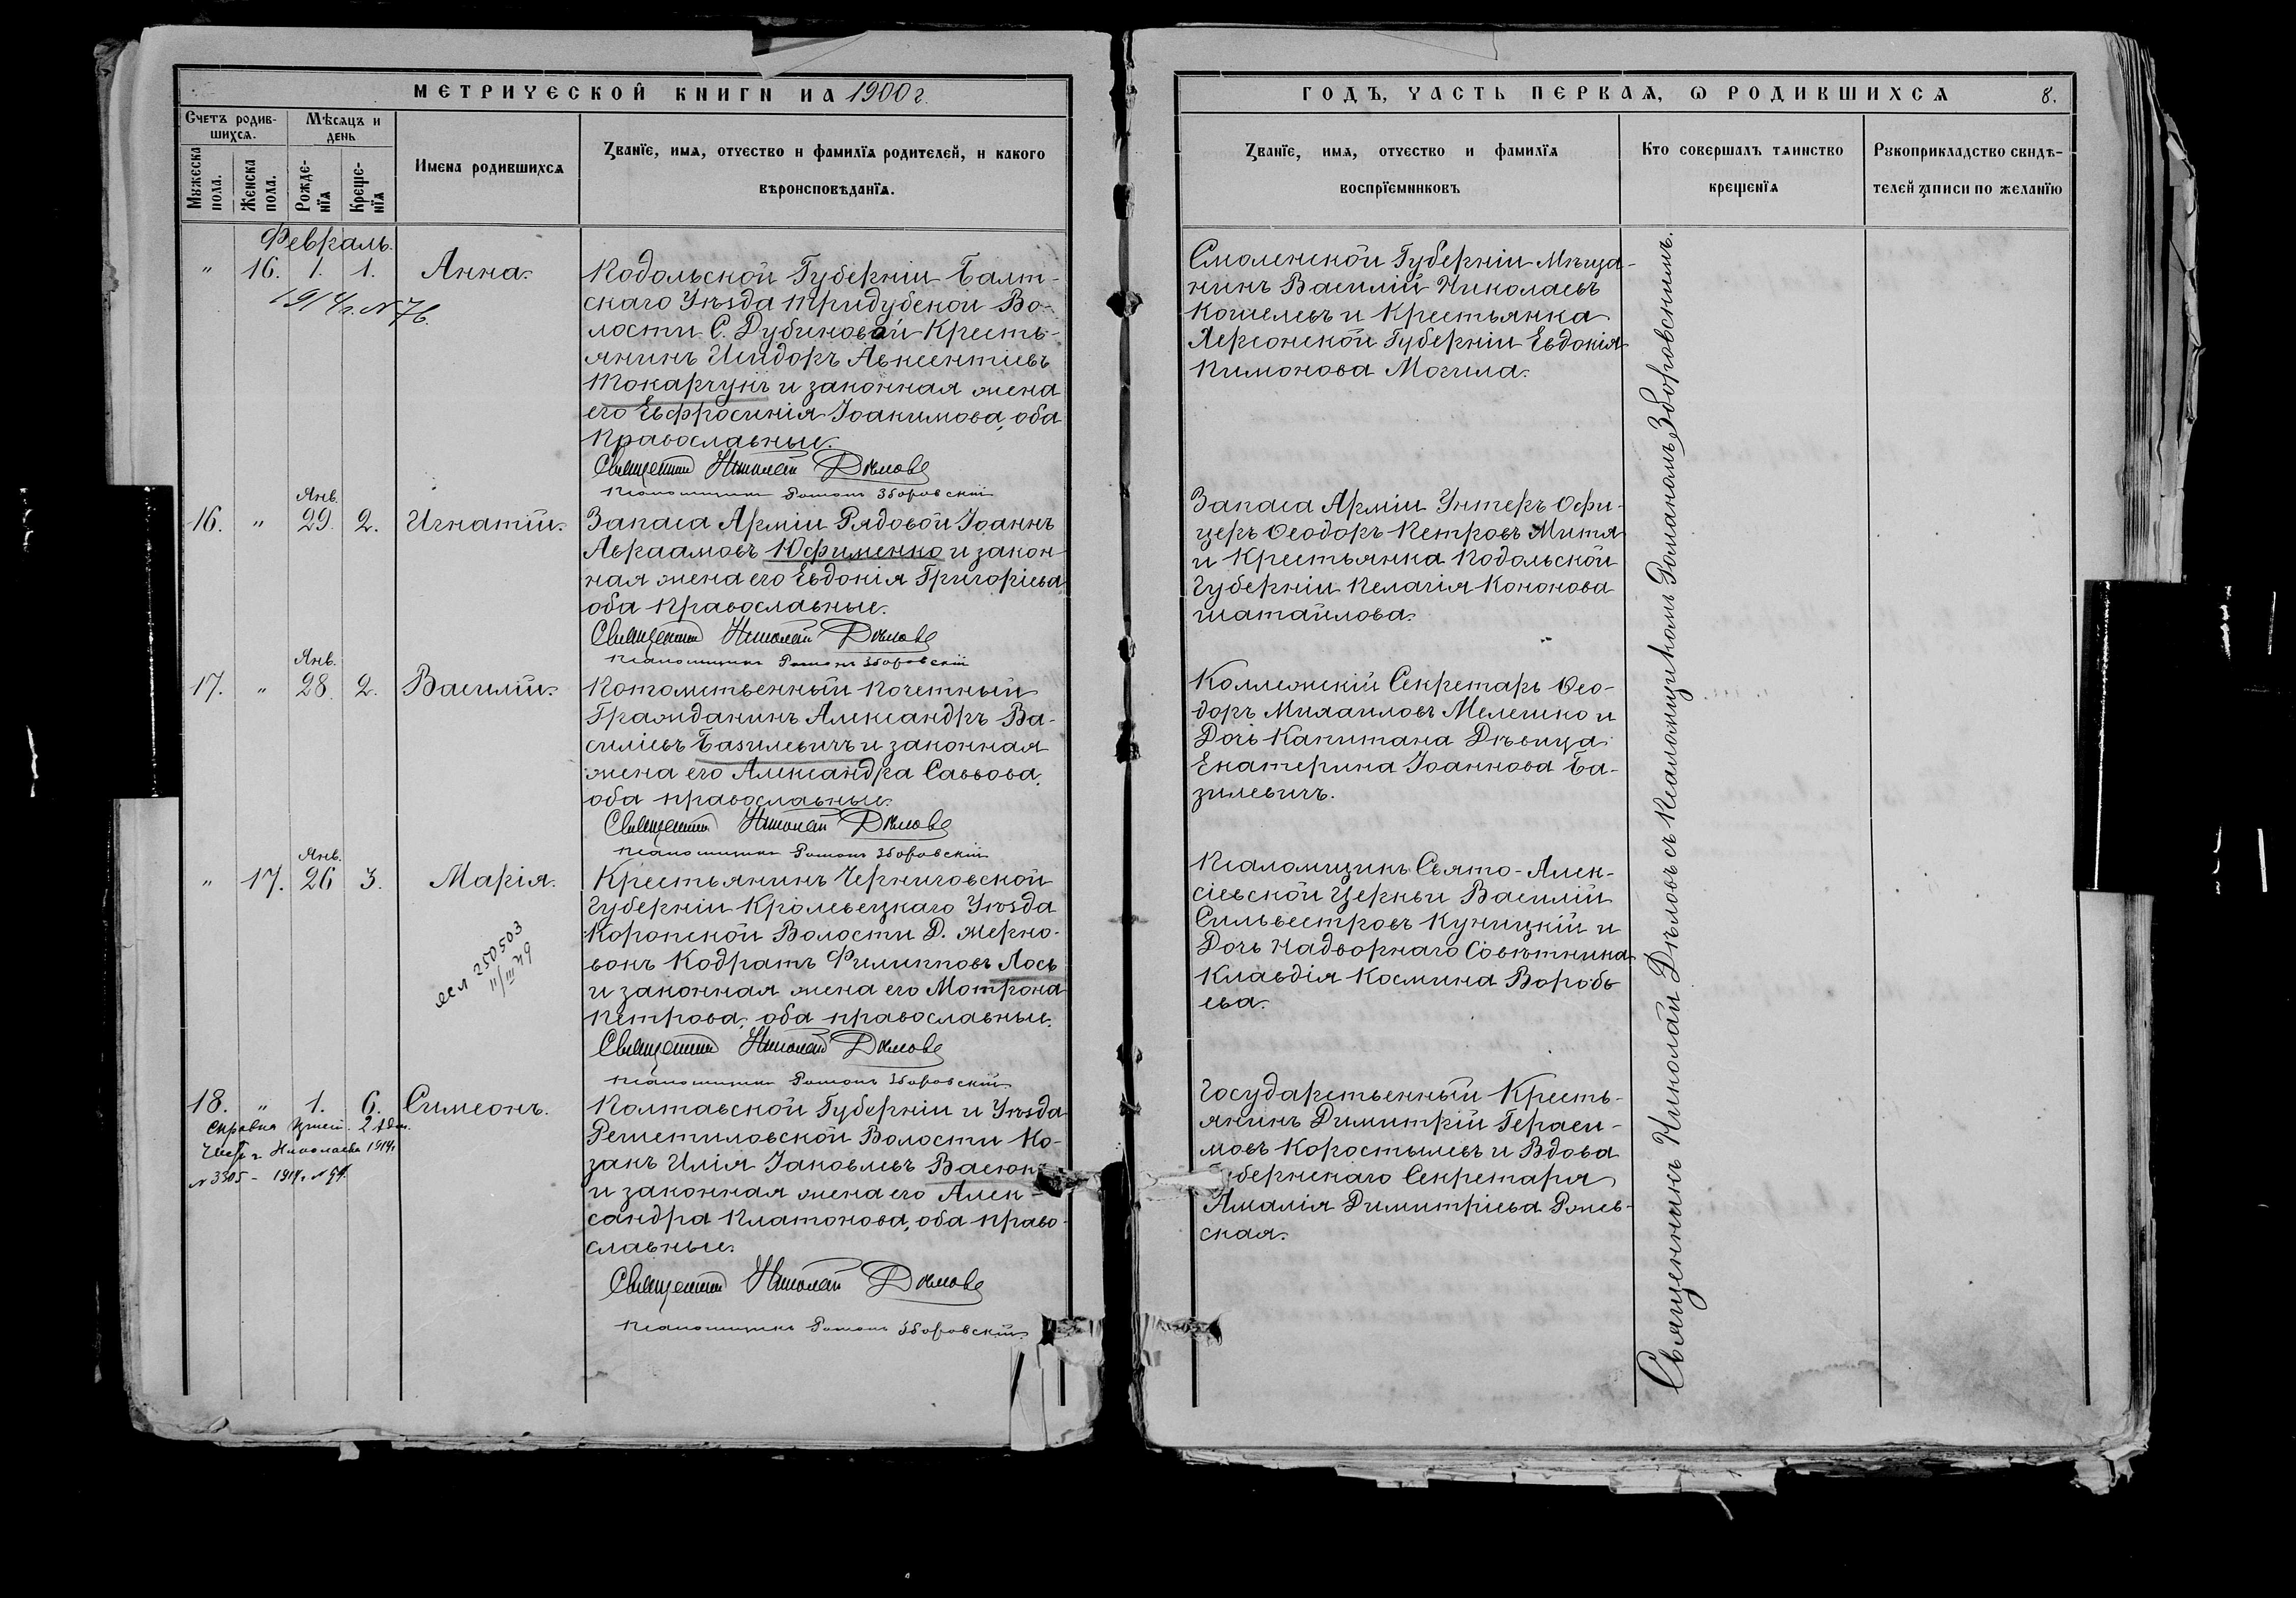 МЕТРИЧЕСКОЙ КНИГИ НА 1900 г.
Счетъ родив-
шихся.
Мѣсяцъ и
день
Мужеска
пола.
Женска
пола.
Рожде-
нїя
Креще-
нїя
Имена родившихся
Званїе, имя, отчество и фамилїя родителей, и какого
вѣроисповѣданїя.
Февраль.
" 16. 1. 1. Анна.
1914 г. N 76.
Подольской Губерніи Балт-
скаго Уѣзда Тридубской Во-
лости С. Дубиновой Кресть-
янинъ Исидоръ Авксентіевъ
Токарчукъ и законная жена
его Евфросинія Іоакимова, оба
православные.
Священникъ Николай Дѣловъ
Псаломщикъ Романъ Зборовскій
Янв.
16. " 29. 2. Игнатій.
Запаса Арміи Рядовой Іоаннъ
Авраамовъ Юфименко и закон-
ная жена его Евдокія Григоріева
оба православные.
Священникъ Николай Дѣловъ
Псаломщикъ Романъ Зборовскій
Янв.
17. " 28. 2. Василій.
Потомственный почетный
Гражданинъ Александръ Ва-
силіевъ Базилевичъ и законная
жена его Александра Саввова,
оба православные.
Священникъ Николай Дѣловъ
Псаломщикъ Романъ Зборовскій
Янв.
" 17. 26 3. Марія.
250503
11/III 49
Крестьянинъ Черниговской
Губерніи Кролевецкаго Уѣзда
Коропской Волости Д. Жерно-
вокъ Кодратъ Филипповъ Лось
и законная жена его Мотрона
Петрова, оба православные.
Священникъ Николай Дѣловъ
Псаломщикъ Романъ Зборовскій.
18. " 1. 6. Симеонъ.
справка
г. Николаева 1914 г.
N 3305 - 1914 г. N
Полтавской Губерніи и Уѣзда
Решетиловской Волости Ко-
закъ Илія Іаковлевъ Васюкъ
и законная жена его Алек-
сандра Платонова, оба право-
славные.
Священникъ Николай Дѣловъ
Псаломщикъ Романъ Зборовскій.
ГОДЪ, ЧАСТЬ ПЕРВАЯ, Ѡ РОДИВШИХСЯ
8.
Званїе, имя, отчество и фамилїя
воспрїемниковъ
Кто совершалъ таинство
крещенїя
Рукоприкладство свидѣ-
телей записи по желанїю
Смоленской Губерніи Мѣща-
нинъ Василій Николаевъ
Кошелевъ и Крестьянка
Херсонской Губерніи Евдокія
Пимонова Могила.
Запаса Арміи Унтеръ Офи-
церъ Ѳеодоръ Петровъ Митя
и Крестьянка Подольской
Губерніи Пелагія Кононова
Шатайлова.
Коллежскій Секретарь Ѳео-
доръ Михаиловъ Мелешко и
Дочь Капитана Дѣвица
Екатерина Іоаннова Ба-
зилевичъ.
Псаломщикъ Свято-Алек-
сіевской Церкви Василій
Сильвестровъ Куницкій и
Дочь Надворнаго Совѣтника
Клавдія Космина Воробь-
ева.
Государственный Кресть-
янинъ Димитрій Гераси-
мовъ Коростылевъ и Вдова
Губернскаго Секретаря
Амалія Димитріева Ржев-
ская.
Священникъ Николай Дѣловъ съ Псаломщикомъ Романомъ Зборовскимъ.